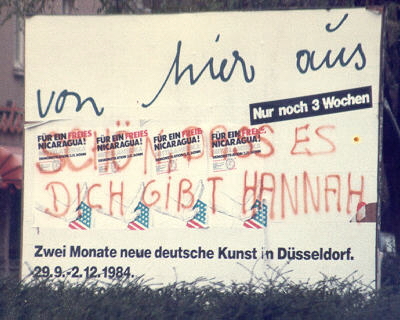 von hier aus
Nur noch 3 Wochen
FÜR EIN FREIES NICARAGUA!
FÜR EIN FREIES NICARAGUA!
FÜR EIN FREIE NICARAGUA!
FÜR EIN FREIES NICARAGUA!
SCHÖN DASS ES
DICH GIBT HANNAH
Zwei Monate neue deutsche Kunst in Düsseldorf.
29.9.-2.12.1984.